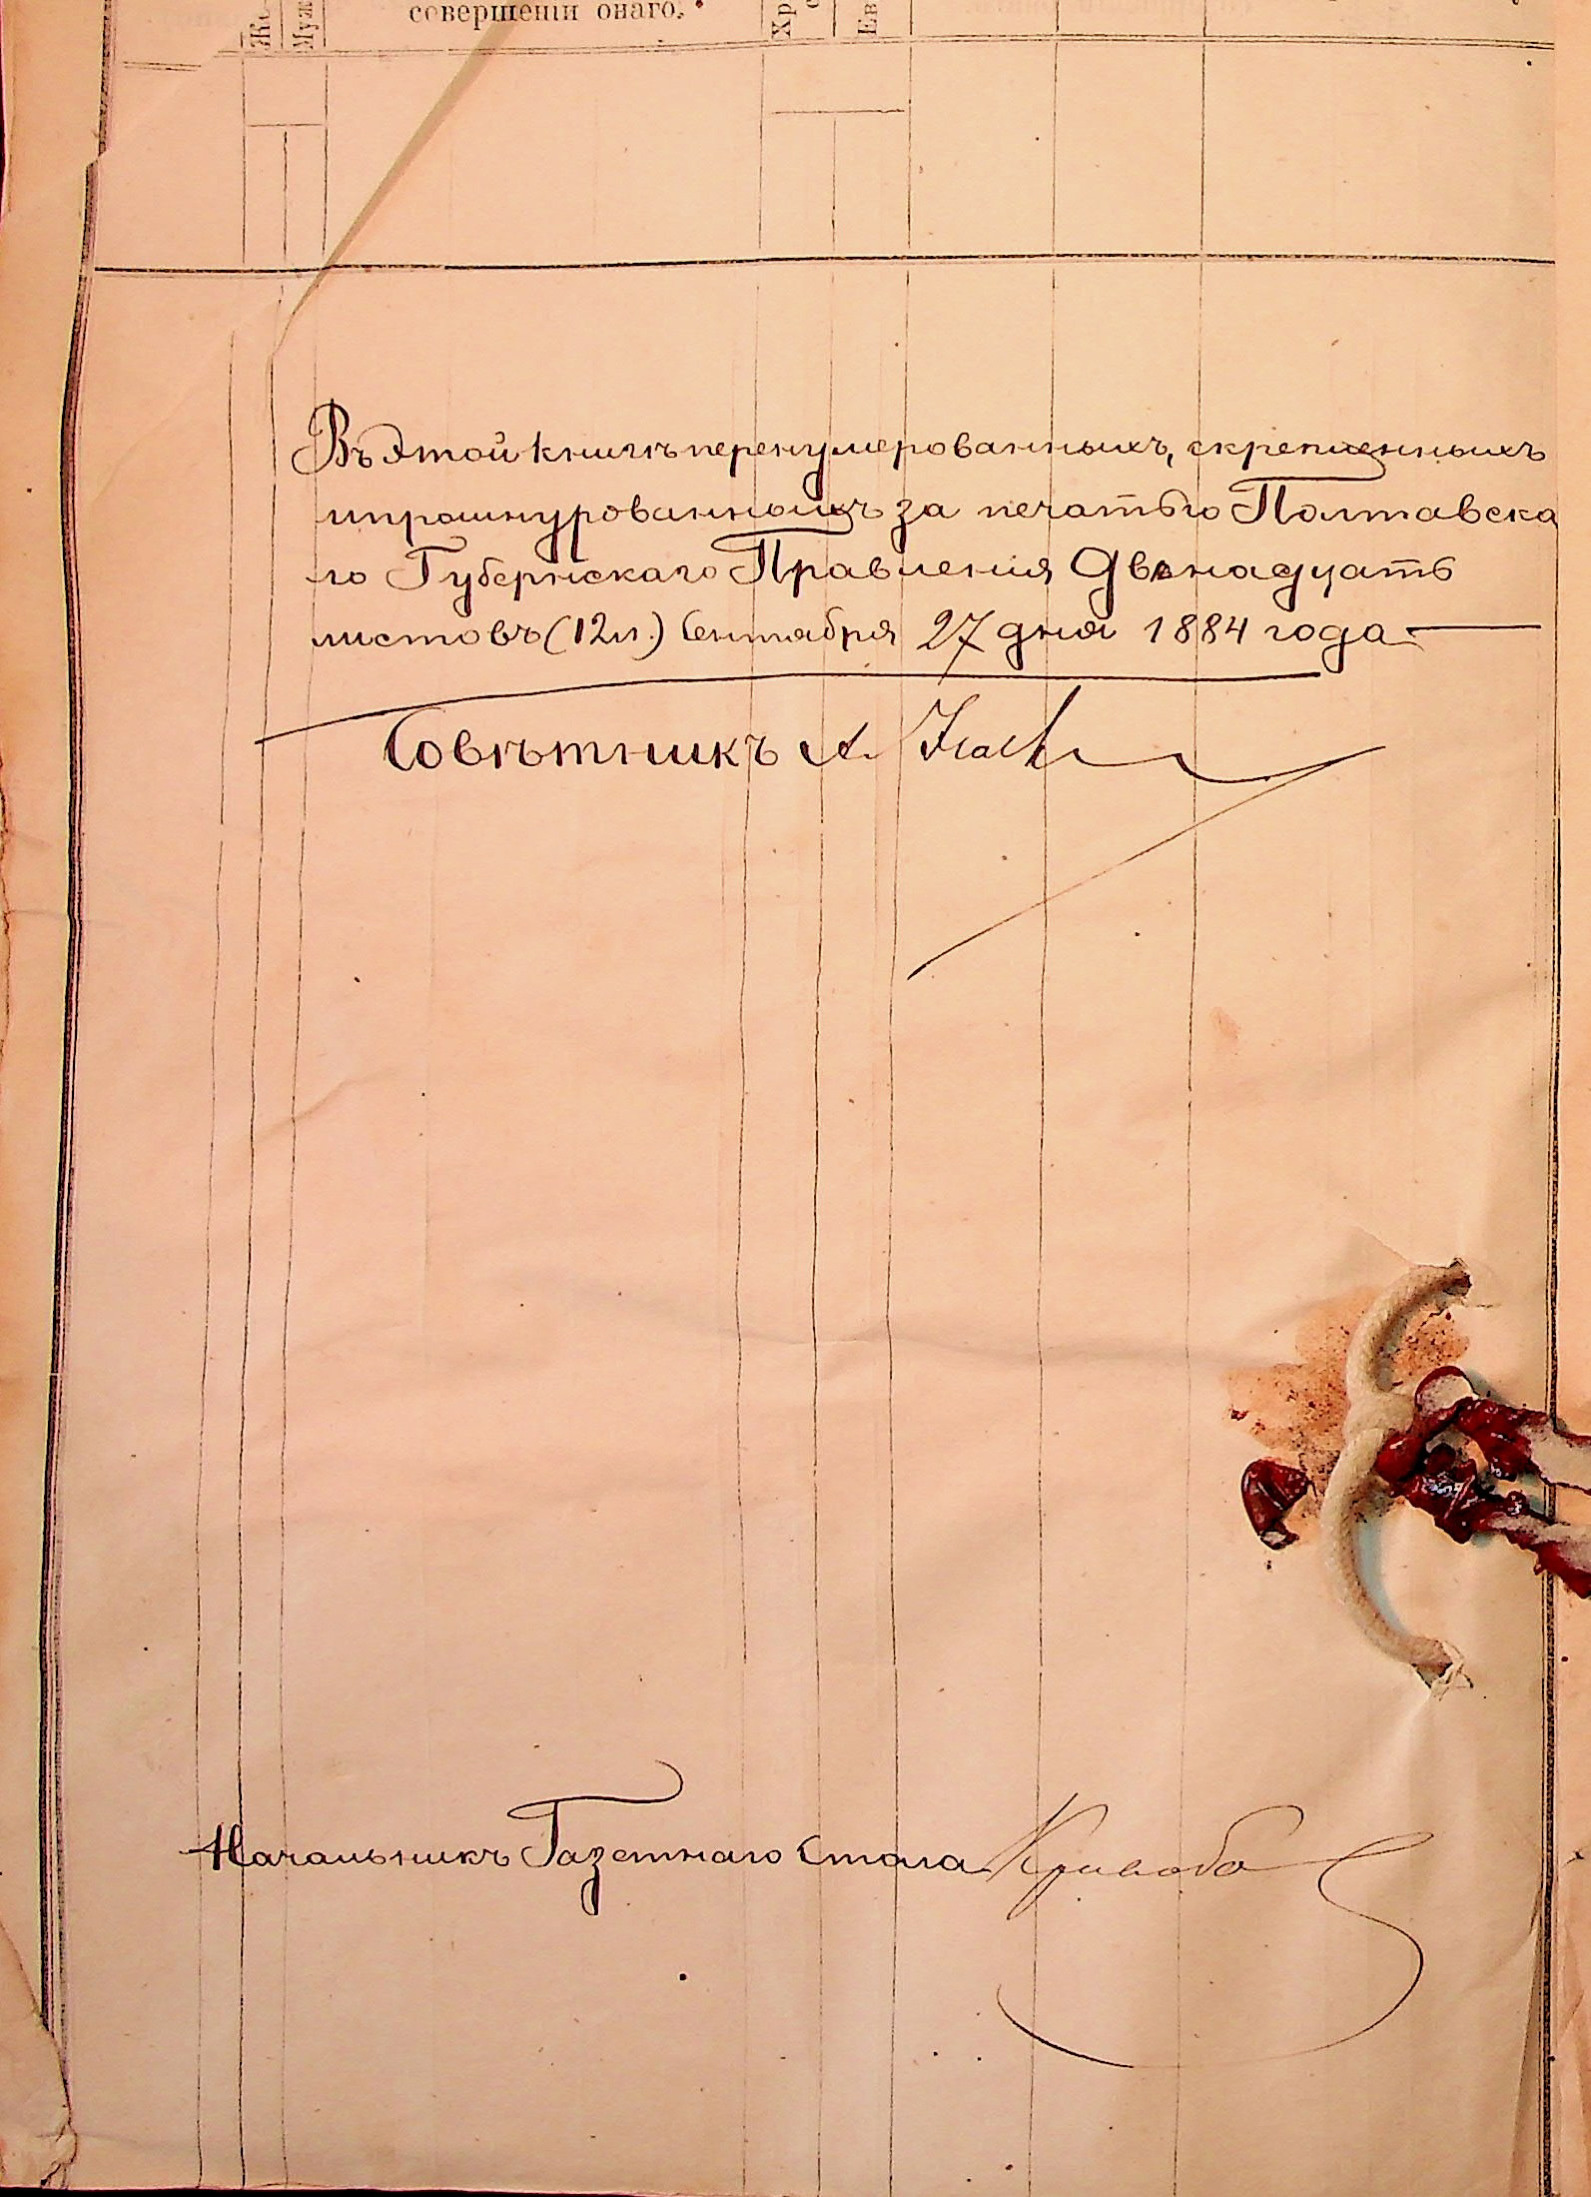 совершеніи онаго.
Въ этой книгѣ перенумерованныхъ, скрепленныхъ
и прошнурованныхъ за печатью Полтавска
го Губернскаго Правленія Двенадцать
листовъ (12 л.) Сентября 27 дня 1884 года
Совѣтникъ А.
Начальникъ Газетнаго Стола